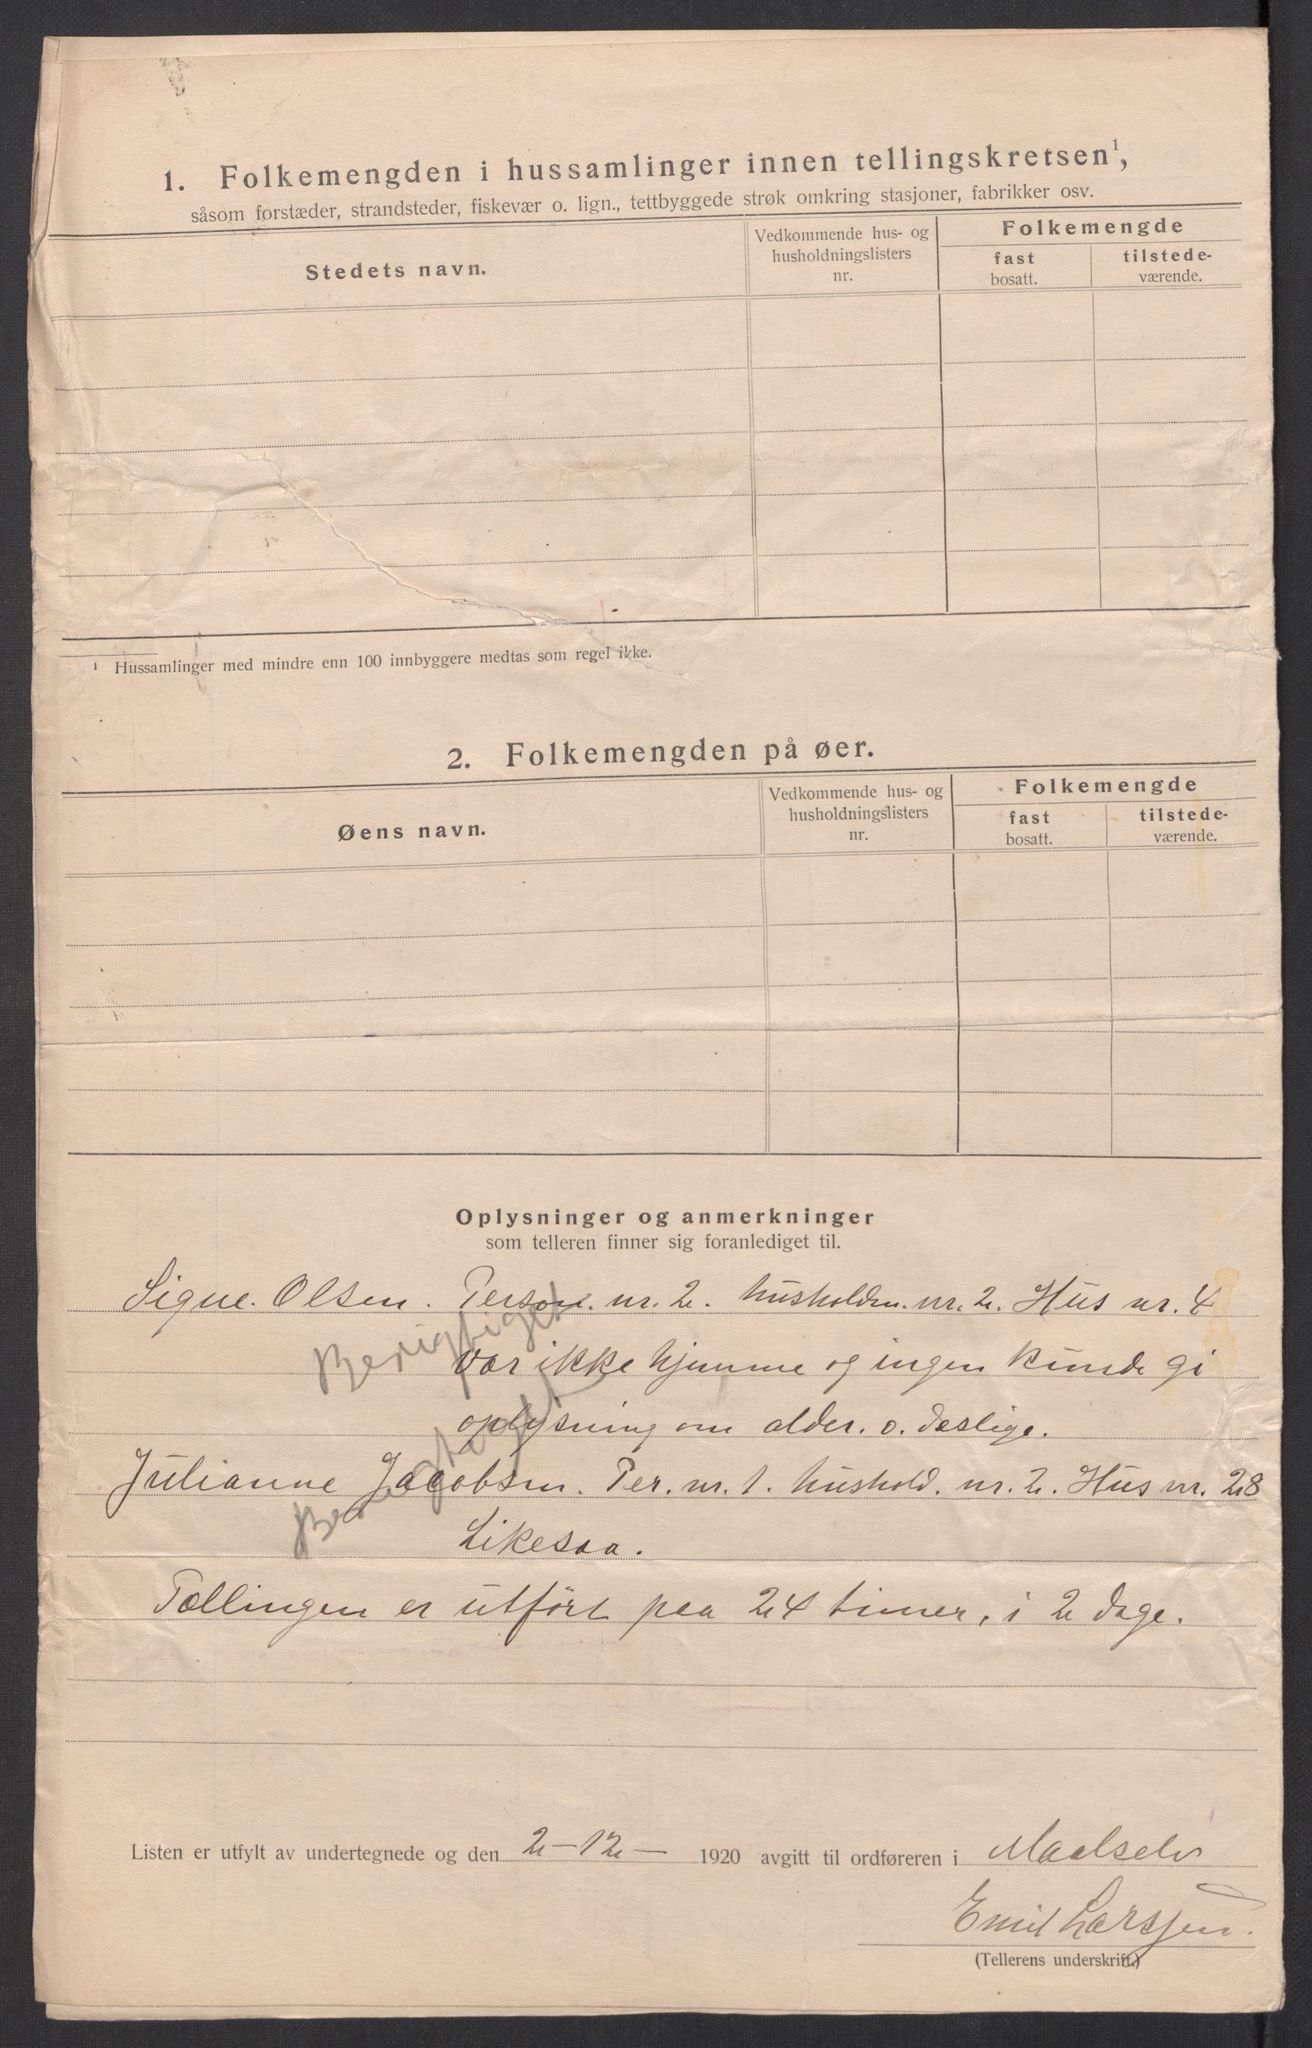 1. Folkemengden i hussamlinger innen tellingskretsen¹,
såsom forstæder, strandsteder, fiskevær o. lign., tettbyggede strøk omkring stasjoner, fabrikker osv.
Stedets navn.
Vedkommende hus- og
husholdningslisters
nr.
Folkemengde
fast
bosatt.
tilstede-
værende.
¹ Hussamlinger med mindre enn 100 innbyggere medtas som regel ikke.
2. Folkemengden på øer.
Øens navn.
Vedkommende hus- og
husholdningslisters
nr.
Folkemengde
fast
bosatt.
tilstede-
værende.
Oplysninger og anmerkninger
som telleren finner sig foranlediget til.
Signe. Olsen. Person. nr. 2. husholdn. nr. 2. Hus nr. 4
Berigtiget
var ikke hjemme og ingen kunde gi
oplysning om alder. o. deslige.
Julianne Jacobsen. Per. nr. 1. hushold. nr. 2. Hus nr. 28
Berigtiget
Likesaa.
Tællingen er utført paa 24 timer, i 2 dage.
Listen er utfylt av undertegnede og den 2-12- 1920 avgitt til ordføreren i Maalselv
Emil Larssen.
(Tellerens underskrift.)